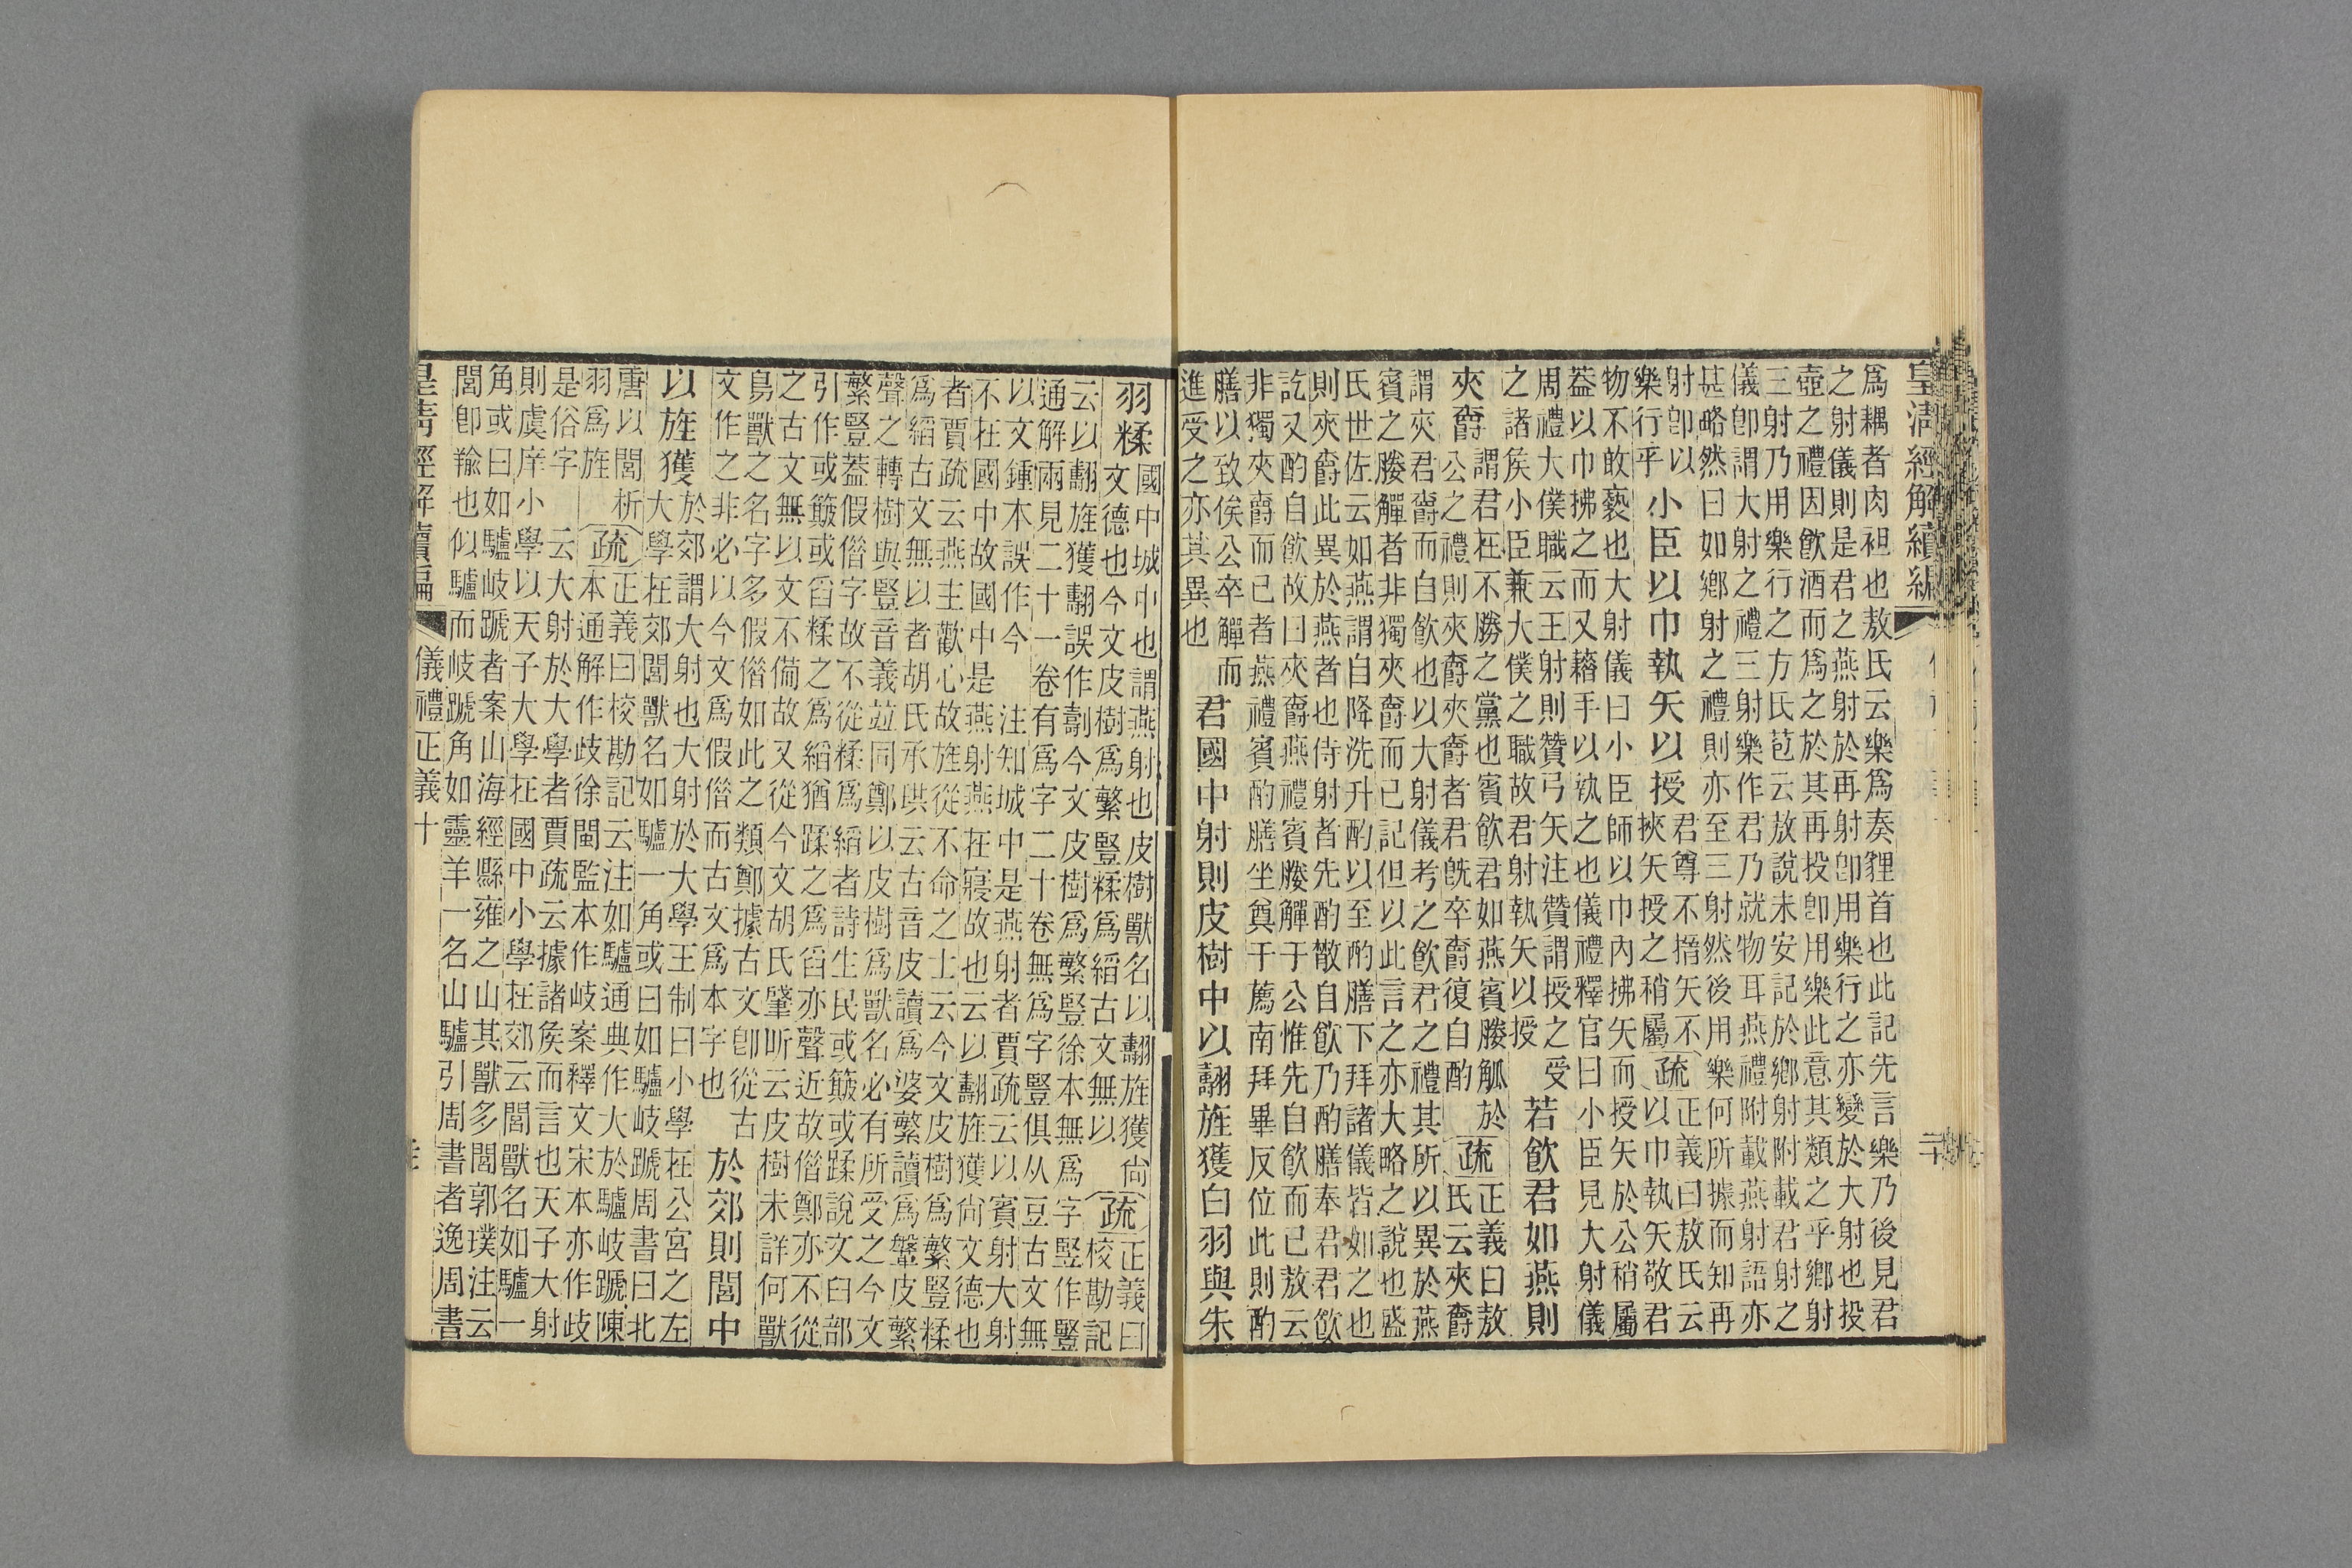 皇清經解續編
爲耦者肉袒也敖氏云樂爲奏貍首也此記先言樂乃後見君
之射儀則是君之燕射於再射卽用樂行之亦變於大射也投
壺之禮因飮酒而爲之於其再投卽用樂此意其類之乎鄉射
三射乃用樂行之方氏苞云敖說未安記於鄉射附載君射之
儀卽謂大射之禮三射樂作君乃就物耳燕禮附載燕射語亦
甚略然曰如鄉射之禮則亦至三射然後用樂何所據而知再
射卽以
樂行乎
小臣以巾執矢以授
君尊不搢矢不
挾矢授之稍屬
疏
正義曰敖氏云
以巾執矢敬君
物不敢褻也大射儀曰小臣師以巾內拂矢而授矢於公稍屬
葢以巾拂之而又藉手以執之也儀禮釋官曰小臣見大射儀
周禮大僕職云王射則贊弓矢注贊謂授之受
之諸矦小臣兼大僕之職故君射執矢以授
若飮君如燕則
夾爵
謂君在不勝之黨也賓飮君如燕賓媵觚於
公之禮則夾爵夾爵者君旣卒爵復自酌
疏
正義曰敖
氏云夾爵
謂夾君爵而自飮也以大射儀考之飮君之禮其所以異於燕
賓之媵觶者非獨夾爵而已記但以此言之亦大略之說也盛
氏世佐云如燕謂自降洗升酌以至酌膳下拜諸儀皆如之也
則夾爵此異於燕者也侍射者先酌散自飮乃酌膳奉君君飮
訖又酌自飮故曰夾爵燕禮賓媵觶于公惟先自飮而已敖云
非獨夾爵而已者燕禮賓酌膳坐奠于薦南拜畢反位此則酌
膳以致俟公卒觶而
進受之亦其異也
君國中射則皮樹中以翿旌獲白羽與朱
羽糅
國中城中也謂燕射也皮樹獸名以翿旌獲尙
文德也今文皮樹爲繁豎糅爲縚古文無以
疏
正義曰
校勘記
云以翿旌獲翿誤作翿今文皮樹爲繁豎徐本無爲字豎作竪
通解兩見二十一卷有爲字二十卷無爲字豎俱从豆古文無
以文鍾本誤作今　注知城中是燕射者賈疏云以賓射大射
不在國中故國中是燕射燕在寢故也云以翿旌獲尙文德也
者賈疏云燕主歡心故旌從不命之士云今文皮樹爲繁豎糅
爲縚古文無以者胡氏承珙云古音皮讀爲婆繁讀爲鞶皮繁
聲之轉樹與豎音義竝同鄭以皮樹爲獸名必有所受之今文
繁豎葢假偕字故不從糅爲縚者詩生民或簸或蹂說文臼部
引作或簸或舀糅之爲縚猶蹂之爲舀亦聲近故偕鄭亦不從
之古文無以文不備故又從今文胡氏肇昕云皮樹未詳何獸
鳥獸之名字多假偕如此之類鄭據古文卽從古
文作之非必以今文爲假偕而古文爲本字也
於郊則閭中
以旌獲
於郊謂大射也大射於大學王制曰小學在公宮之左
大學在郊閭獸名如驢一角或曰如驢岐蹏周書曰北
唐以閭析
羽爲旌
疏
正義曰校勘記云注如驢通典作大於驢岐蹏陳
本通解作歧徐閩監本作岐案釋文宋本亦作歧
是俗字　云大射於大學者賈疏云據諸矦而言也天子大射
則虞庠小學以天子大學在國中小學在郊云閭獸名如驢一
角或曰如驢岐蹏者案山海經縣雍之山其獸多閭郭璞注云
閭卽羭也似驢而岐蹏角如靈羊一名山驢引周書者逸周書
皇清經解續編
儀禮正義十